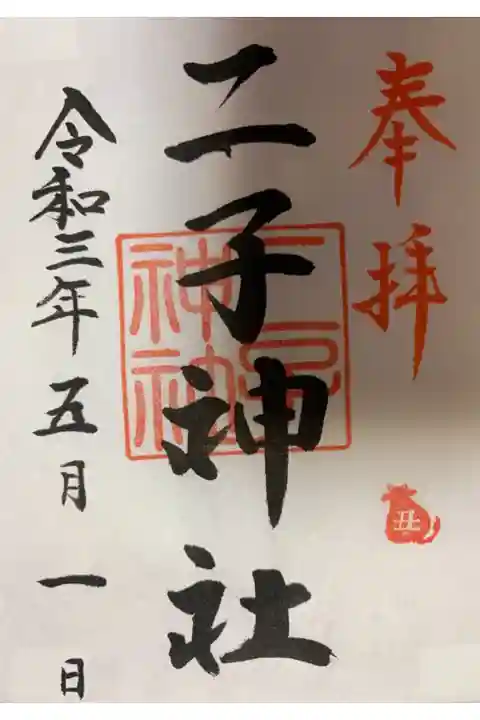 奉拝
丑
二子神社
二子神社
令和三年五月一日